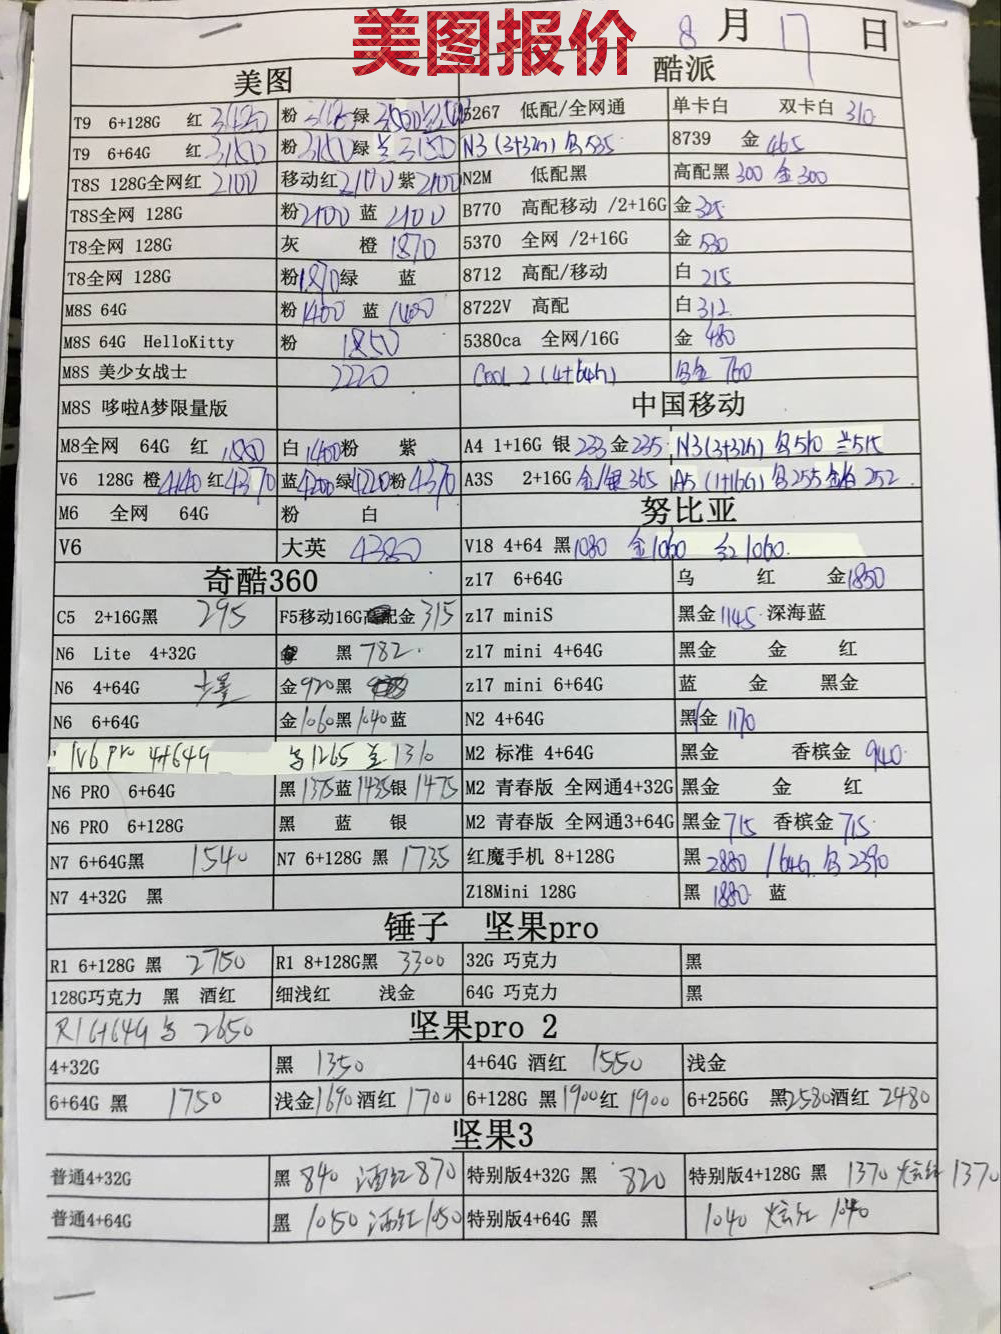 美图报价
8 月 17 日
美图 酷派
T9 6+128G 红 粉 绿 5267 低配/全网通 单卡白 双卡白 310
T9 6+64G 红 3150 粉 3150 绿 兰 3150 N3 (3+32G) 乌 535 8739 金 465
T8S 128G全网红 2100 移动红 2100 紫 2100 N2M 低配黑 高配黑 300 金 300
T8S全网 128G 粉 2100 蓝 2100 B770 高配移动 /2+16G 金 325
T8全网 128G 灰 橙 1870 5370 全网 /2+16G 金 530
T8全网 128G 粉 1870 绿 蓝 8712 高配/移动 白 215
M8S 64G 粉 1400 蓝 1400 8722V 高配 白 312
M8S 64G HelloKitty 粉 1850 5380ca 全网/16G 金 480
M8S 美少女战士 2220 Cool 2 (4+64G) 乌金 760
M8S 哆啦A梦限量版 中国移动
M8全网 64G 红 白 1400 粉 紫 A4 1+16G 银 233 金 235 N3(3+32G) 乌 510 兰 515
V6 128G 橙 4140 红 4370 蓝 4200 绿 4220 粉 4370 A3S 2+16G 金/银 365 A5 (1+16G) 乌 255 金 252
M6 全网 64G 粉 白 努比亚
V6 大英 4380 V18 4+64 黑 1080 金 1060 红 1060
奇酷360 z17 6+64G 乌 红 金 1850
C5 2+16G黑 295 F5移动16G高配金 315 z17 miniS 黑金 1145 深海蓝
N6 Lite 4+32G 黑 782 z17 mini 4+64G 黑金 金 红
N6 4+64G 金 920 黑 z17 mini 6+64G 蓝 金 黑金
N6 6+64G 金 1060 黑 1040 蓝 N2 4+64G 黑金 1170
N6 Pro 4+64G 乌 1265 兰 1310 M2 标准 4+64G 黑金 香槟金 940
N6 PRO 6+64G 黑 1375 蓝 1435 银 1475 M2 青春版 全网通4+32G 黑金 金 红
N6 PRO 6+128G 黑 蓝 银 M2 青春版 全网通3+64G 黑金 715 香槟金 715
N7 6+64G黑 1540 N7 6+128G 黑 1735 红魔手机 8+128G 黑 2880 /64G 乌 2390
N7 4+32G 黑 Z18Mini 128G 黑 1880 蓝
锤子 坚果pro
R1 6+128G 黑 2750 R1 8+128G黑 3300 32G 巧克力 黑
128G巧克力 黑 酒红 细浅红 浅金 64G 巧克力 黑
R1 6+64G 乌 2650 坚果pro 2
4+32G 黑 1350 4+64G 酒红 1550 浅金
6+64G 黑 1750 浅金 1690 酒红 1700 6+128G 黑 1900 红 1900 6+256G 黑 2580 酒红 2480
坚果3
普通4+32G 黑 840 酒红 870 特别版4+32G 黑 820 特别版4+128G 黑 1370 炫红 1370
普通4+64G 黑 1050 酒红 1050 特别版4+64G 黑 1040 炫红 1040